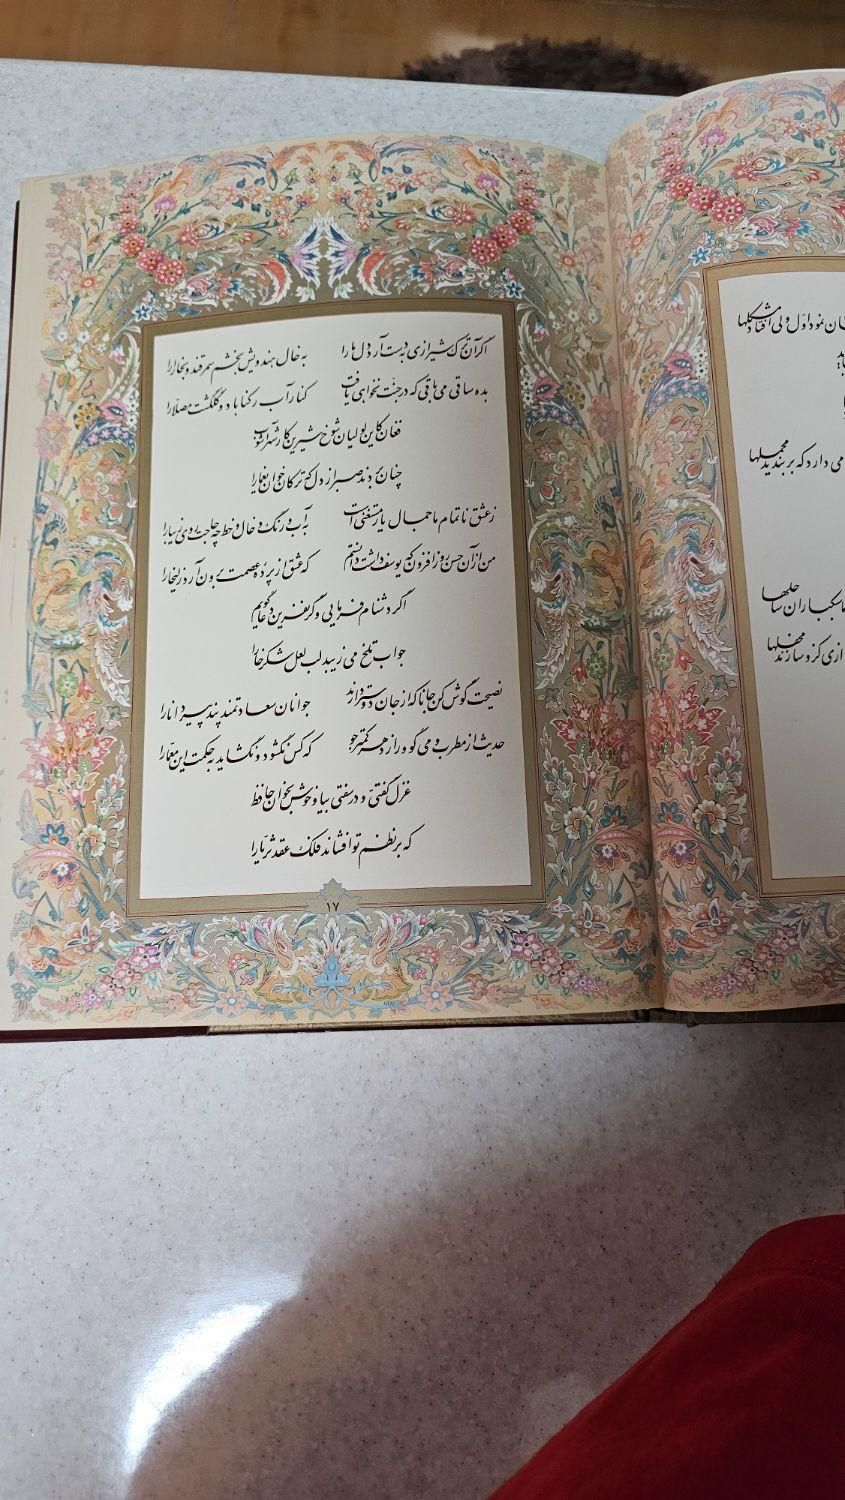 اگر آن ترک شیرازی به دست آرد دل ما را به خال هندویش بخشم سمرقند و بخارا را
بده ساقی می باقی که در جنّت نخواهی یافت کنار آب رکناباد و گلگشت مصلّا را
فغان کاین لولیان شوخ شیرین کار شهرآشوب
چنان بردند صبر از دل که ترکان خوان یغما را
ز عشق ناتمام ما جمال یار مستغنی است به آب و رنگ و خال و خط چه حاجت روی زیبا را
من از آن حسن روزافزون که یوسف داشت دانستم که عشق از پرده عصمت برون آرد زلیخا را
اگر دشنام فرمایی و گر نفرین دعا گویم
جواب تلخ می‌زیبد لب لعل شکرخا را
نصیحت گوش کن جانا که از جان دوست‌تر دارند جوانان سعادتمند پند پیر دانا را
حدیث از مطرب و می گو و راز دهر کمتر جو که کس نگشود و نگشاید به حکمت این معمّا را
غزل گفتی و در سفتی بیا و خوش بخوان حافظ
که بر نظم تو افشاند فلک عقد ثریّا را
۱۷
نمود اول ولی افتاد مشکلها
می دارد که بربندید محملها
سبکباران ساحلها
رازی کزو سازند محفلها